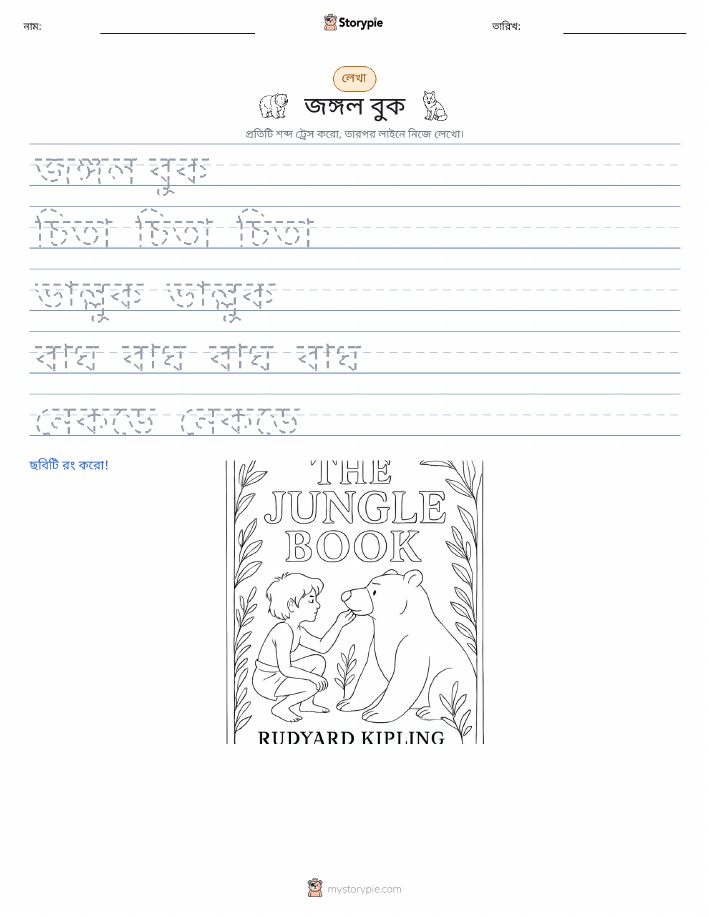 নাম:
Storypie
তারিখ:
লেখা
জঙ্গল বুক
প্রতিটি শব্দ ট্রেস করো, তারপর লাইনে নিজে লেখো।
জঙ্গল বুক
চিতা চিতা চিতা
ভাল্লুক ভাল্লুক
বাঘ বাঘ বাঘ বাঘ
নেকড়ে নেকড়ে
ছবিটি রং করো!
THE
JUNGLE
BOOK
RUDYARD KIPLING
mystorypie.com